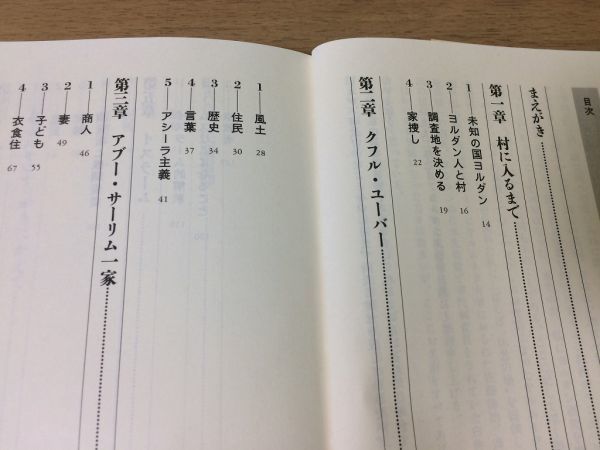 目次
まえがき
第一章 村に入るまで
1 未知の国ヨルダン 14
2 ヨルダン人と村 16
3 調査地を決める 19
4 家捜し 22
第二章 クフル・ユーバー
1 風土 28
2 住民 30
3 歴史 34
4 言葉 37
5 アシーラ主義 41
第三章 アブー・サーリム一家
1 商人 46
2 妻 49
3 子ども 55
4 衣食住 67